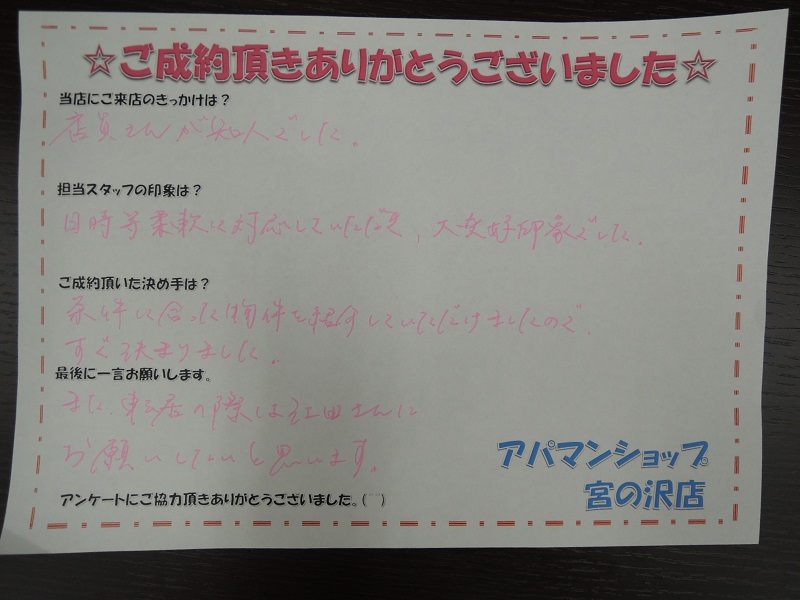 ☆ご成約頂きありがとうございました☆
当店にご来店のきっかけは？
店員さんが知人でした。
担当スタッフの印象は？
日時等柔軟に対応していただき、大変好印象でした。
ご成約頂いた決め手は？
条件に合った物件を紹介していただけましたので
すぐ決まりました。
最後に一言お願いします。
また、転居の際は江田さんに
お願いしたいと思います。
アンケートにご協力頂きありがとうございました。(^^)
アパマンショップ
宮の沢店